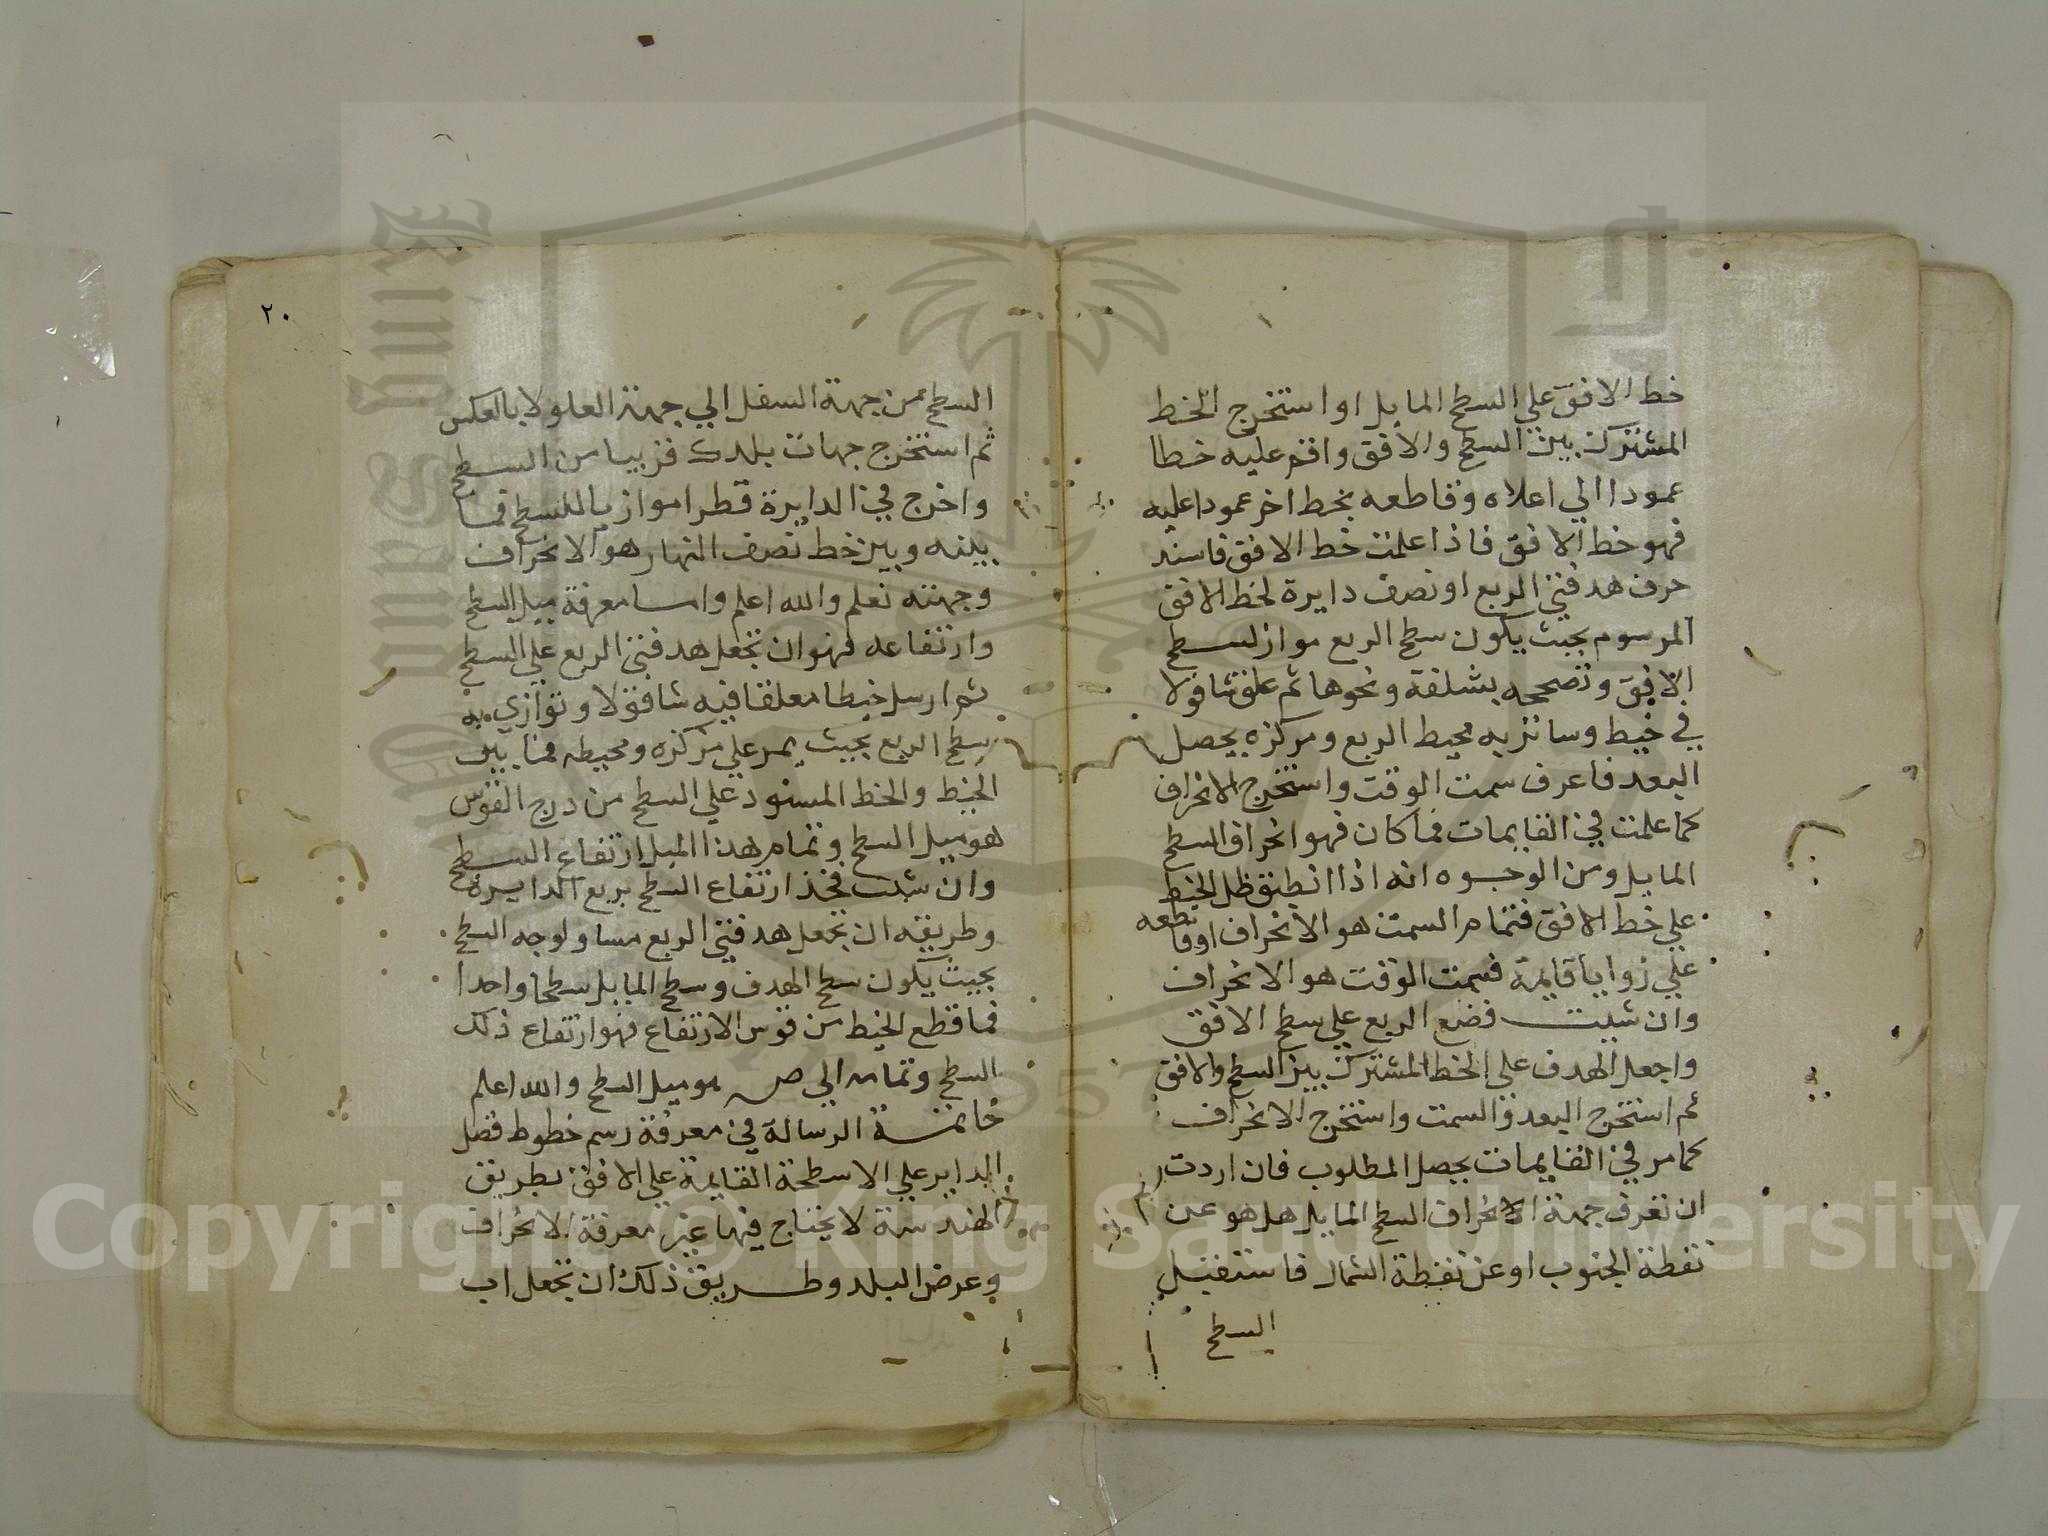 خط الافق علي السطح المايل او استخرج الخط
المشترك بين السطح والافق واقم عليه خطا
عمودا الي اعلاه وقاطعه بخط اخر عمودا عليه
فهو خط الافق فاذا علمت خط الافق فاسند
حرف هدفتي الربع او نصف دايرة لخط الافق
المرسوم بحيث يكون سطح الربع مواز لسطح
الافق وتصححه بشلفة ونحوها ثم علق شاقولا
في خيط وسا تر به محيط الربع ومركزه يحصل
البعد فاعرف سمت الوقت واستخرج الانحراف
كما علمت في القايمات فما كان فهو انحراف السطح
المايل ومن الوجوه انه اذا انطبق ظل الخيط
علي خط الافق فتمام السمت هو الانحراف او قاطعه
علي زوايا قايمة فسمت الوقت هو الانحراف
وان شيت فضع الربع علي سطح الافق
واجعل الهدف علي الخط المشترك بين السطح والافق
ثم استخرج البعد والسمت واستخرج الانحراف
كما مر في القايمات يحصل المطلوب فان اردت
ان تعرف جهة الانحراف السطح المايل هل هو عن
نقطة الجنوب او عن نقطة الشمال فاستقبل
السطح
٢٠
السطح من جهة السفل الي جهة العلو لا بالعكس
ثم استخرج جهات بلدك قريبا من السطح
واخرج في الدايرة قطرا موازيا للسطح فما
بينه وبين خط نصف النهار هو الانحراف
وجهته تعلم والله اعلم واما معرفة ميل السطح
وارتفاعه فهو ان تجعل هدفتي الربع علي السطح
ثم ارسل خيطا معلقا فيه شاقولا وتوازي به
سطح الربع بحيث يمر علي مركزه ومحيطه فما بين
الخيط والخط المسنود علي السطح من درج القوس
هو ميل السطح وتمام هذا الميل ارتفاع السطح
وان شيت فخذ ارتفاع السطح بربع الدايرة
وطريقه ان تجعل هدفتي الربع مساو لوجه السطح
بحيث يكون سطح الهدف وسطح المايل سطحا واحدا
فما قطع الخيط من قوس الارتفاع فهو ارتفاع ذلك
السطح وتمامه الي ص هو ميل السطح والله اعلم
خاتمة الرسالة في معرفة رسم خطوط فضل
الداير علي الاسطحة القايمة علي الافق بطريق
الهندسة لا يحتاج فيها غير معرفة الانحراف
وعرض البلد وطريق ذلك ان تجعل اب
Copyright © King Saud University
King Saud University
1957